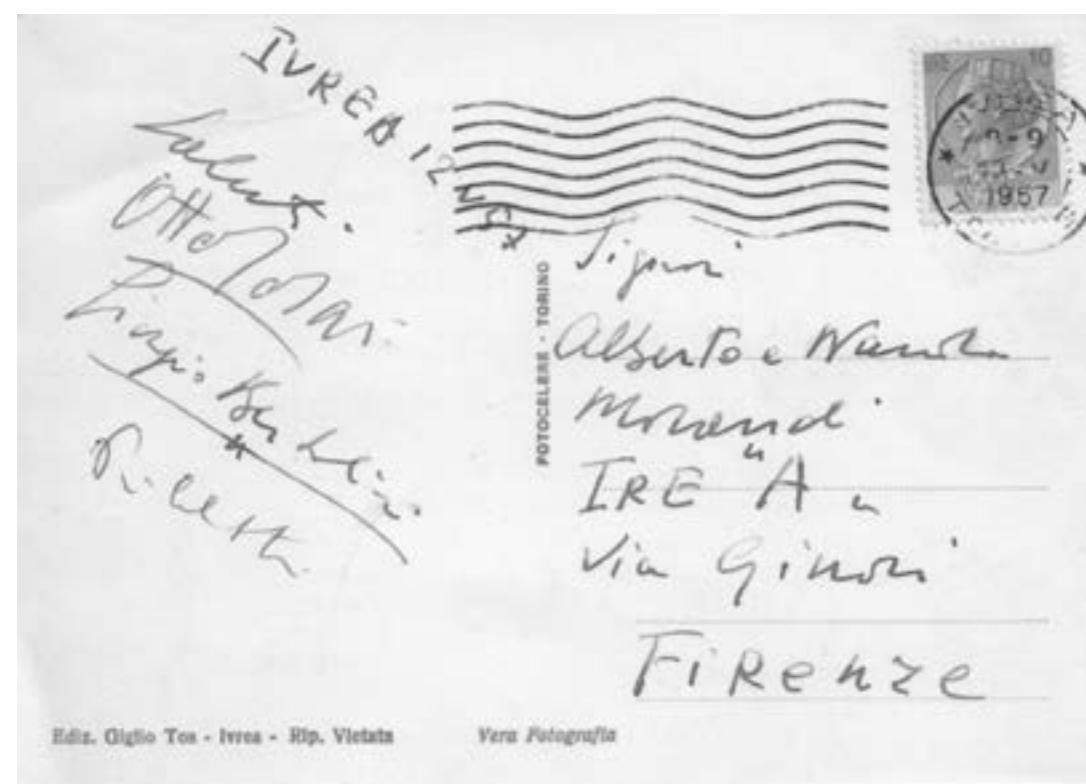 IVREA 12 V 57
Saluti.
Otto
Giorgio
1957
FOTOCELERE - TORINO
Signori
Alberto e Wanda
Morandi
IRE "A"
Via Ginori
FIRENZE
Ediz. Giglio Tos - Ivrea - Rip. Vietata
Vera Fotografia